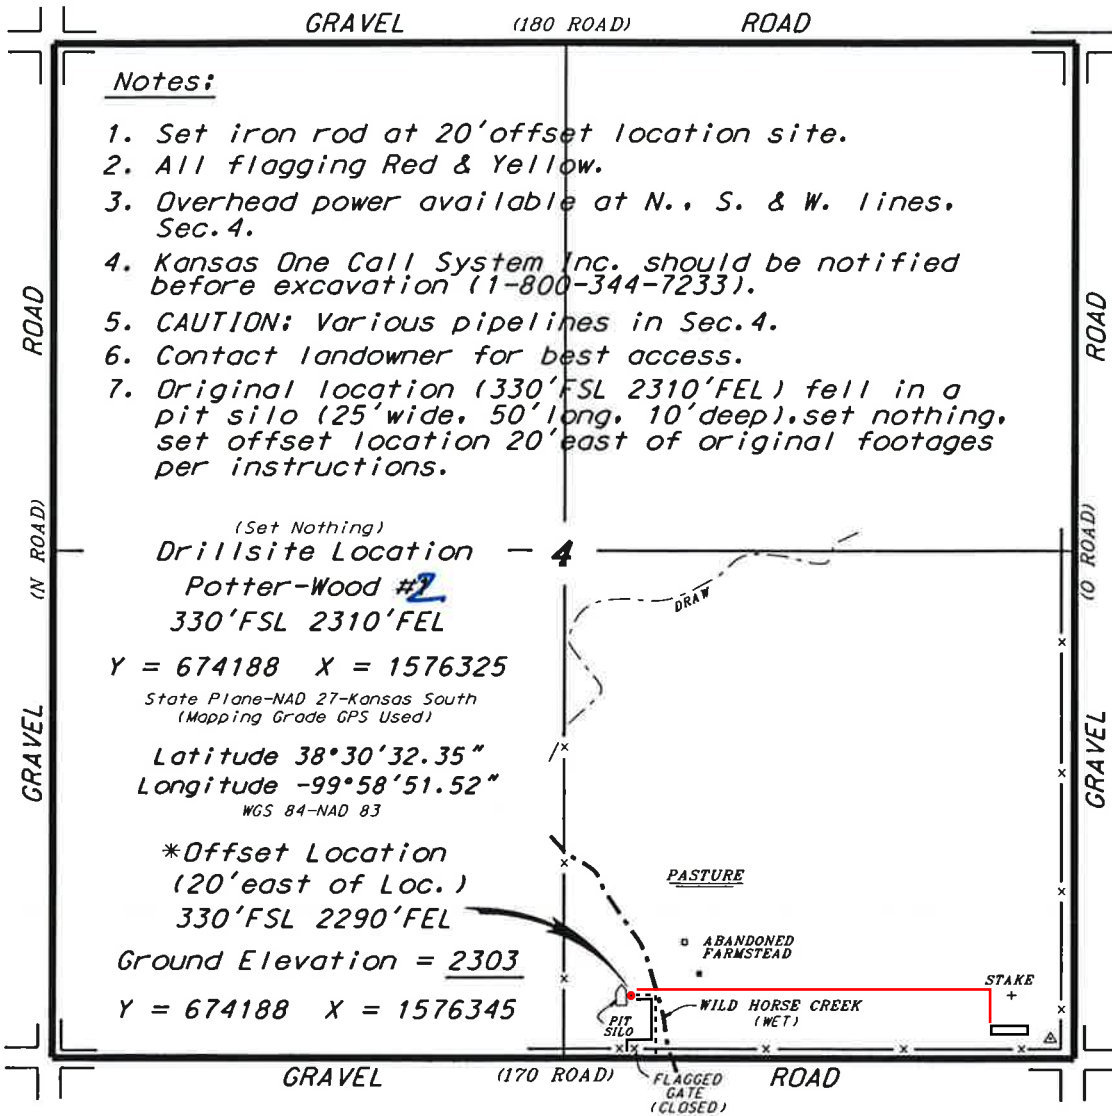 GRAVEL (180 ROAD) ROAD
Notes:
1. Set iron rod at 20'offset location site.
2. All flagging Red & Yellow.
3. Overhead power available at N., S. & W. lines,
Sec.4.
4. Kansas One Call System Inc. should be notified
before excavation (1-800-344-7233).
5. CAUTION: Various pipelines in Sec.4.
6. Contact landowner for best access.
7. Original location (330'FSL 2310'FEL) fell in a
pit silo (25'wide, 50'long, 10'deep),set nothing,
set offset location 20'east of original footages
per instructions.
ROAD
(N ROAD)
GRAVEL
ROAD
(O ROAD)
GRAVEL
(Set Nothing)
Drillsite Location
4
Potter-Wood #2
330'FSL 2310'FEL
Y = 674188 X = 1576325
State Plane-NAD 27-Kansas South
(Mapping Grade GPS Used)
Latitude 38°30'32.35"
Longitude -99°58'51.52"
WGS 84-NAD 83
*Offset Location
(20'east of Loc.)
330'FSL 2290'FEL
Ground Elevation = 2303
Y = 674188 X = 1576345
DRAW
PASTURE
ABANDONED
FARMSTEAD
STAKE
WILD HORSE CREEK
(WET)
PIT
SILO
GRAVEL (170 ROAD) ROAD
FLAGGED
GATE
(CLOSED)